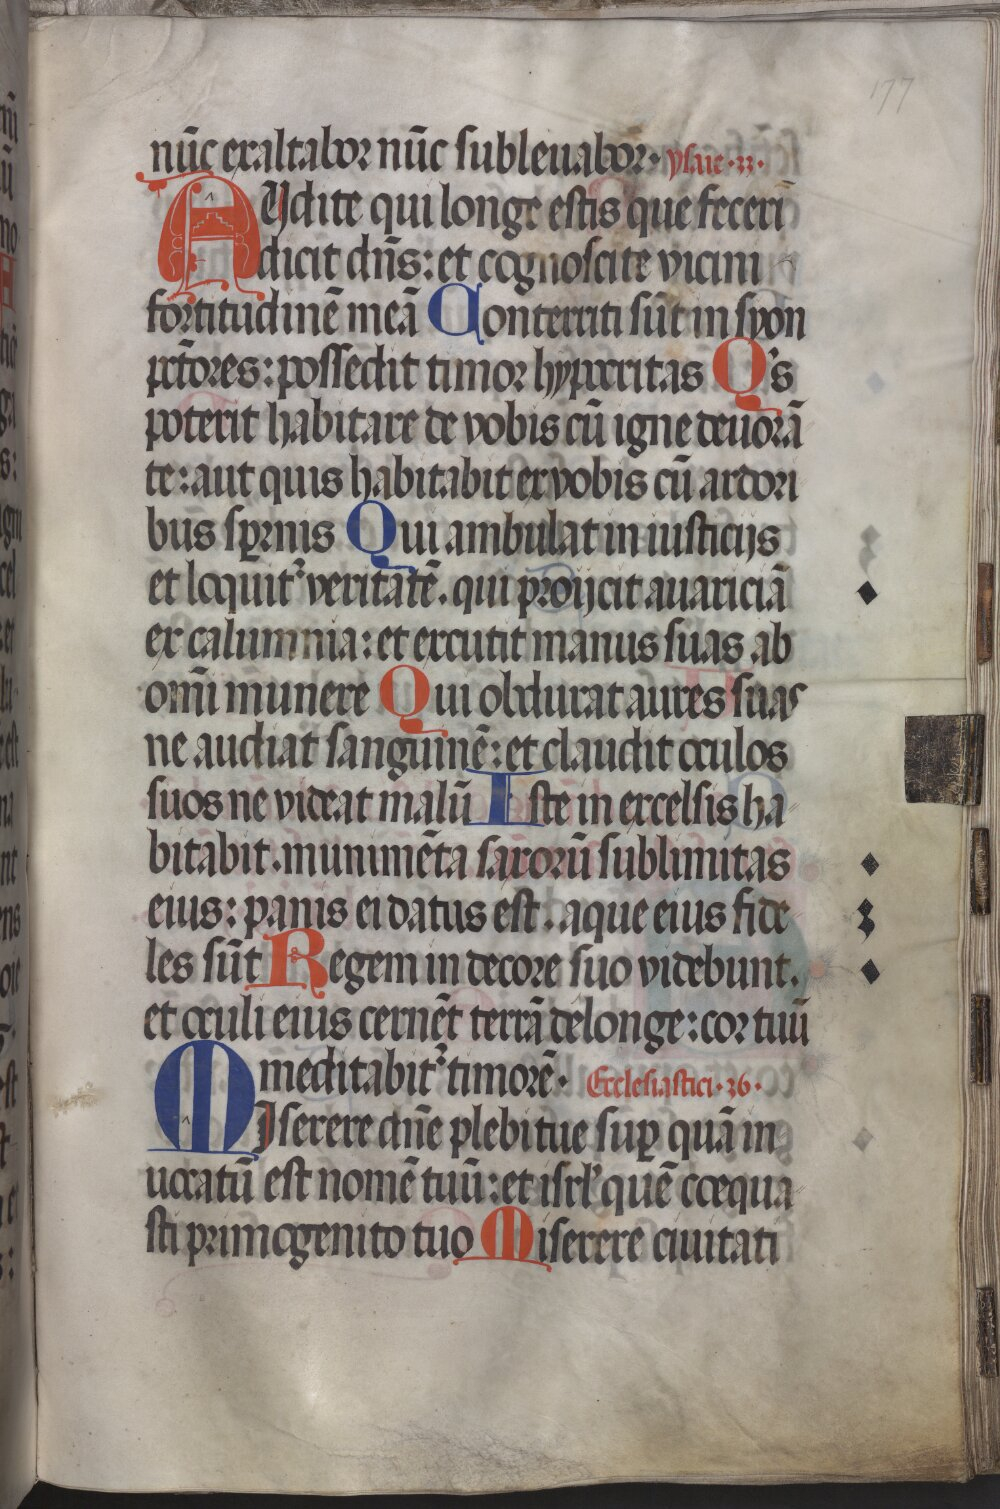 177
nūc exaltabor nūc subleuabor· ysaie·33·
AUdite qui longe estis que fecerī
dicit dn̄s: et cognoscite vicini
fortitudinē meā Conterriti sūt in syon
pctōres: possedit timor hypocritas Q's
poterit habitare de vobis cū igne deuorā
te: aut quis habitabit ex vobis cū ardori
bus sp̄rnis Qui ambulat in iusticijs
et loquit᷑ veritatē. qui proijcit auariciā
ex calumnia: et excutit manus suas ab
om̄i munere Qui obdurat aures suas
ne audiat sanguinē: et claudit oculos
suos ne videat malū Iste in excelsis ha
bitabit. munimēta saxorū sublimitas
eius: panis ei datus est. aque eius fide
les sūt Regem in decore suo videbunt.
et oculi eius cernēt terrā de longe: cor tuū
meditabit᷑ timorē· Ecclesiastici·36·
MIserere dn̄e plebi tue sup̄ quā in
uocatū est nomē tuū: et isrl' quē coequa
sti primogenito tuo Miserere ciuitati